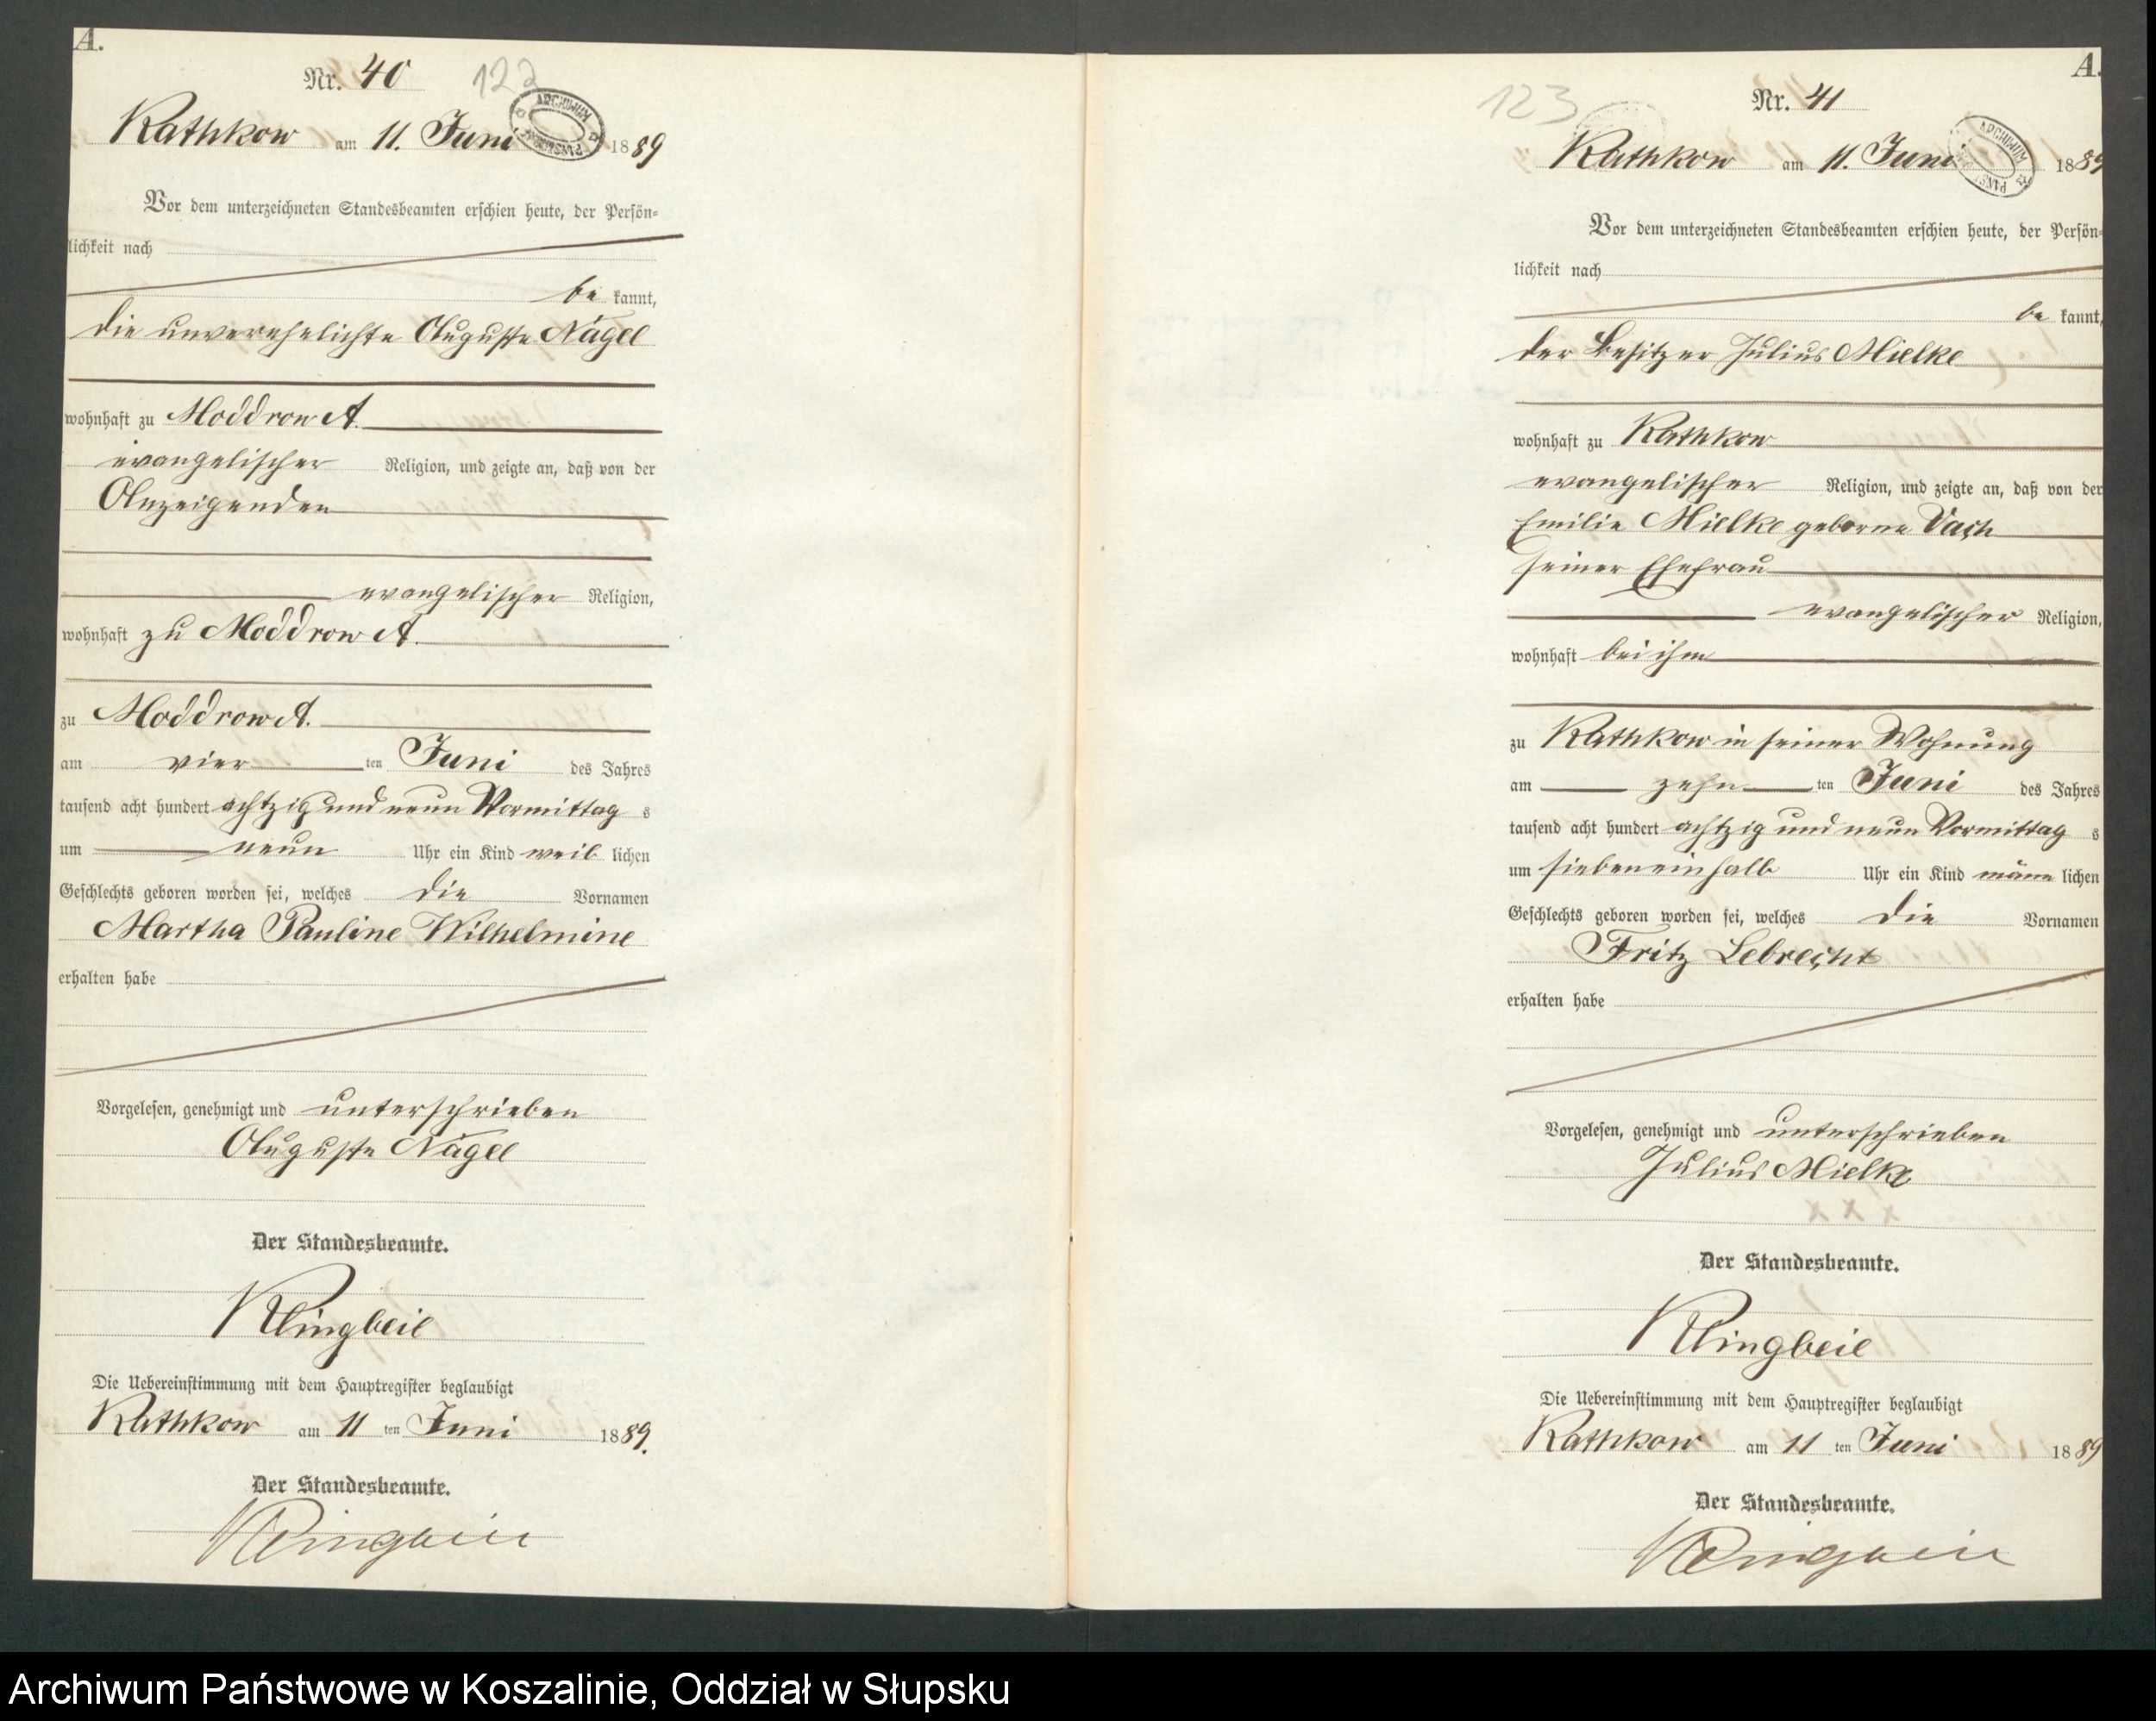 A.
Nr. 40
122
ARCHIWUM
Rathkow am 11. Juni 1889
Vor dem unterzeichneten Standesbeamten erschien heute, der Persön-
lichkeit nach
be kannt,
die unverehelichte Auguste Nagel
wohnhaft zu Moddrow A.
evangelischer Religion, und zeigte an, daß von der
Anzeigenden
evangelischer Religion,
wohnhaft zu Moddrow A.
zu Moddrow A.
am vier ten Juni des Jahres
tausend acht hundert achtzig und neun Vormittag s
um neun Uhr ein Kind weib lichen
Geschlechts geboren worden sei, welches die Vornamen
Martha Pauline Wilhelmine
erhalten habe
Vorgelesen, genehmigt und unterschrieben
Auguste Nagel
Der Standesbeamte.
Klingbeil
Die Uebereinstimmung mit dem Hauptregister beglaubigt
Rathkow am 11 ten Juni 1889.
Der Standesbeamte.
Klingbeil
A.
Nr. 41
123
ARCHIWUM
Rathkow am 11. Juni 1889
Vor dem unterzeichneten Standesbeamten erschien heute, der Persön-
lichkeit nach
be kannt,
der Besitzer Julius Mielke
wohnhaft zu Rathkow
evangelischer Religion, und zeigte an, daß von der
Emilie Mielke geborne Vach
seiner Ehefrau
evangelischer Religion,
wohnhaft bei ihm
zu Rathkow in seiner Wohnung
am zehn ten Juni des Jahres
tausend acht hundert achtzig und neun Vormittag s
um siebeneinhalb Uhr ein Kind männ lichen
Geschlechts geboren worden sei, welches die Vornamen
Fritz Lebrecht
erhalten habe
Vorgelesen, genehmigt und unterschrieben
Julius Mielke
Der Standesbeamte.
Klingbeil
Die Uebereinstimmung mit dem Hauptregister beglaubigt
Rathkow am 11 ten Juni 1889
Der Standesbeamte.
Klingbeil
Archiwum Państwowe w Koszalinie, Oddział w Słupsku